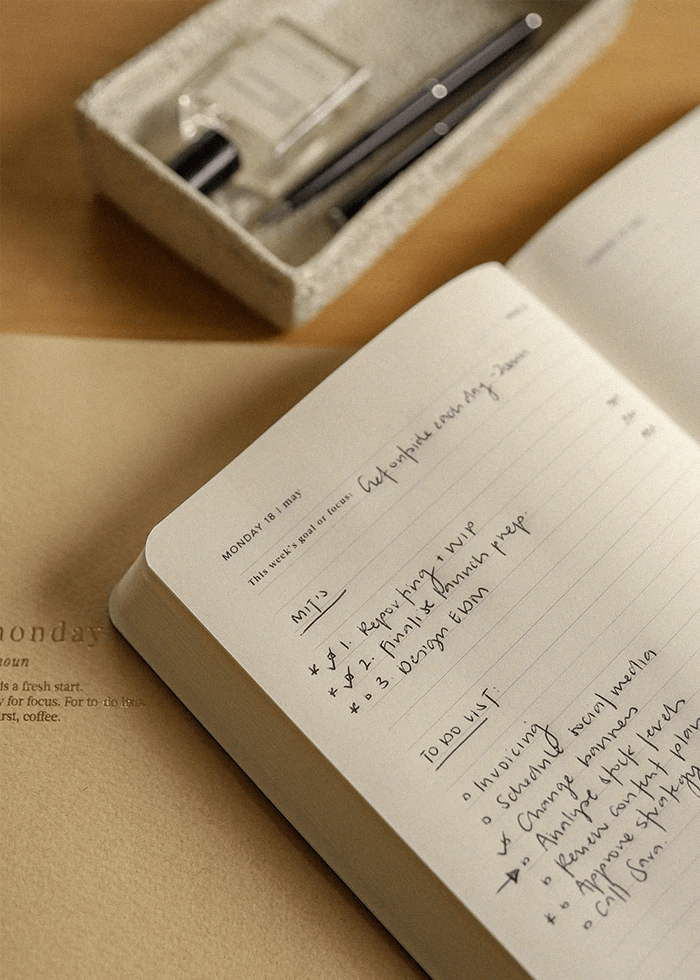 MONDAY 18 | may
This week's goal or focus: Get outside each day
MITs
* 1. Reporting + WIP
* 2. Finalise launch prep.
* 3. Design EDM
TO DO LIST:
Invoicing
Schedule social media
Change banners
Analyse stock levels
Review content plan
* Approve strategy
Call Sara.
monday
noun
is a fresh start.
y for focus. For to-do lists.
irst, coffee.